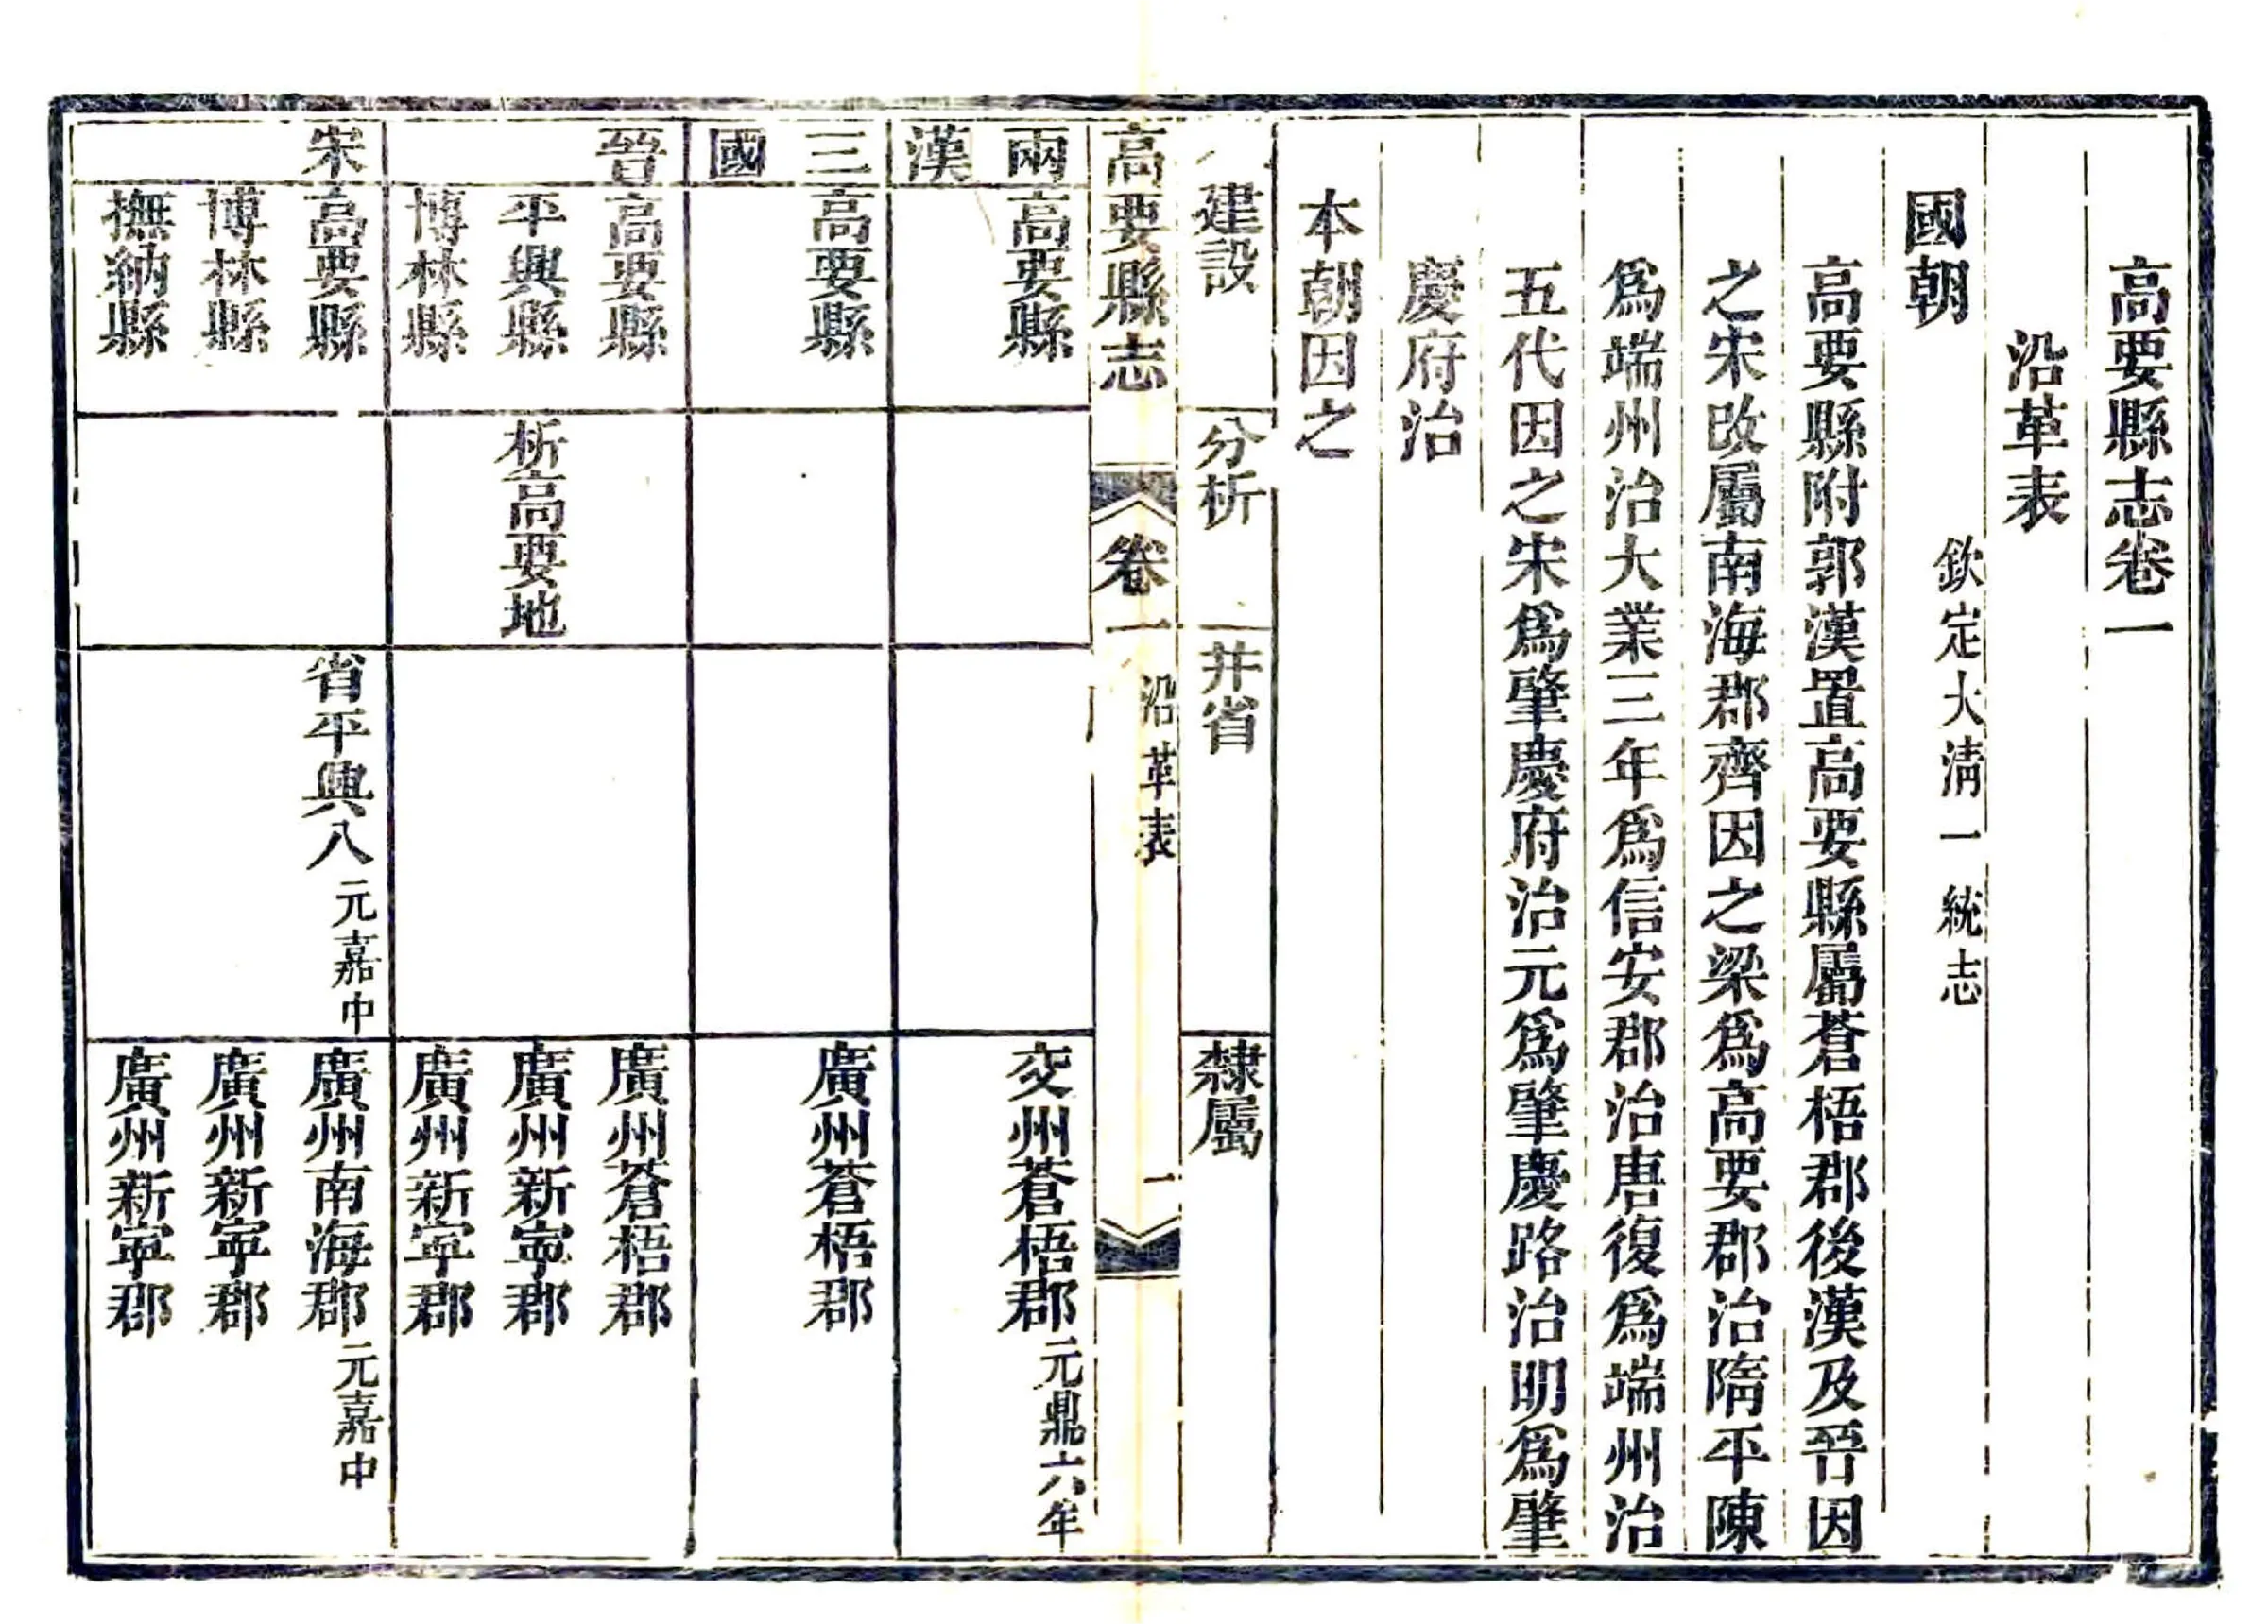 高要縣志卷一
沿革表
國朝
欽定大淸一統志
高要縣附郭漢置高要縣屬蒼梧郡後漢及晉因
之宋改屬南海郡齊因之梁爲高要郡治隋平陳
爲端州治大業三年爲信安郡治唐復爲端州治
五代因之宋爲肇慶府治元爲肇慶路治明爲肇
慶府治
本朝因之
建設 分析 并省 隸屬
高要縣志 卷一 沿革表 一
兩漢 高要縣 交州蒼梧郡元鼎六年
三國 高要縣 廣州蒼梧郡
晉 高要縣 廣州蒼梧郡
平興縣 析高要地 廣州新寧郡
博林縣 廣州新寧郡
宋 高要縣 省平興入元嘉中 廣州南海郡元嘉中
博林縣 廣州新寧郡
撫納縣 廣州新寧郡